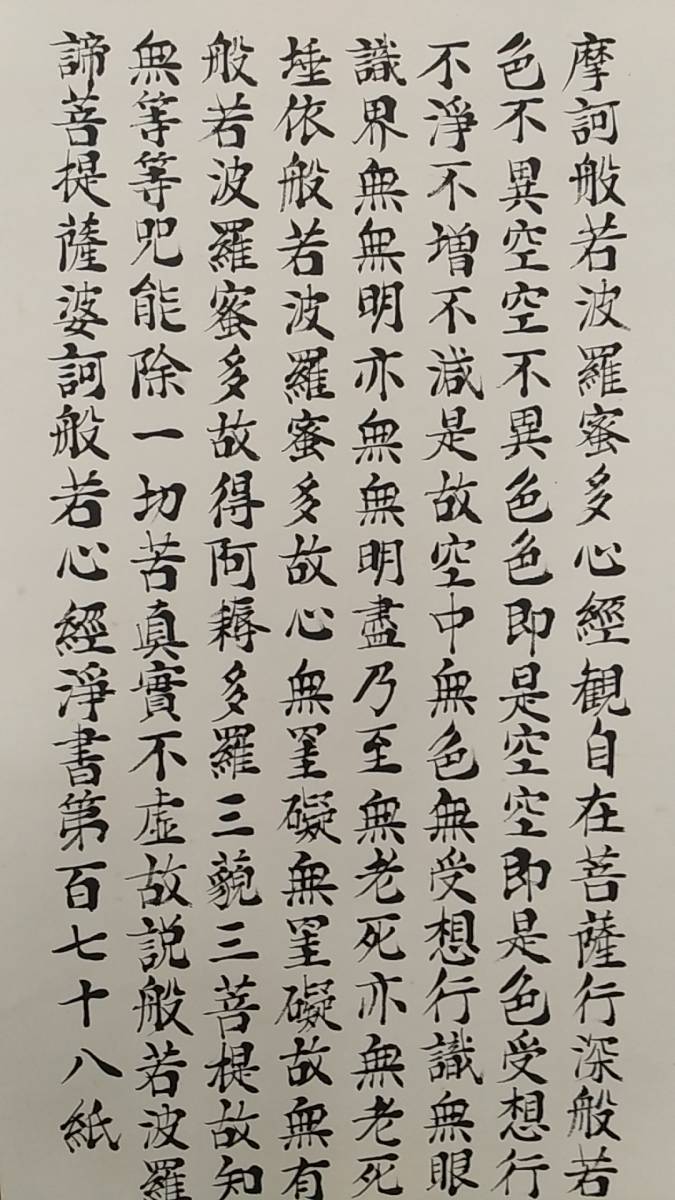 摩訶般若波羅蜜多心經観自在菩薩行深般若
色不異空空不異色色即是空空即是色受想行
不淨不增不減是故空中無色無受想行識無眼
識界無無明亦無無明盡乃至無老死亦無老死
埵依般若波羅蜜多故心無罣礙無罣礙故無有
般若波羅蜜多故得阿耨多羅三藐三菩提故知
無等等咒能除一切苦真實不虛故説般若波羅
諦菩提薩婆訶般若心經淨書第百七十八紙